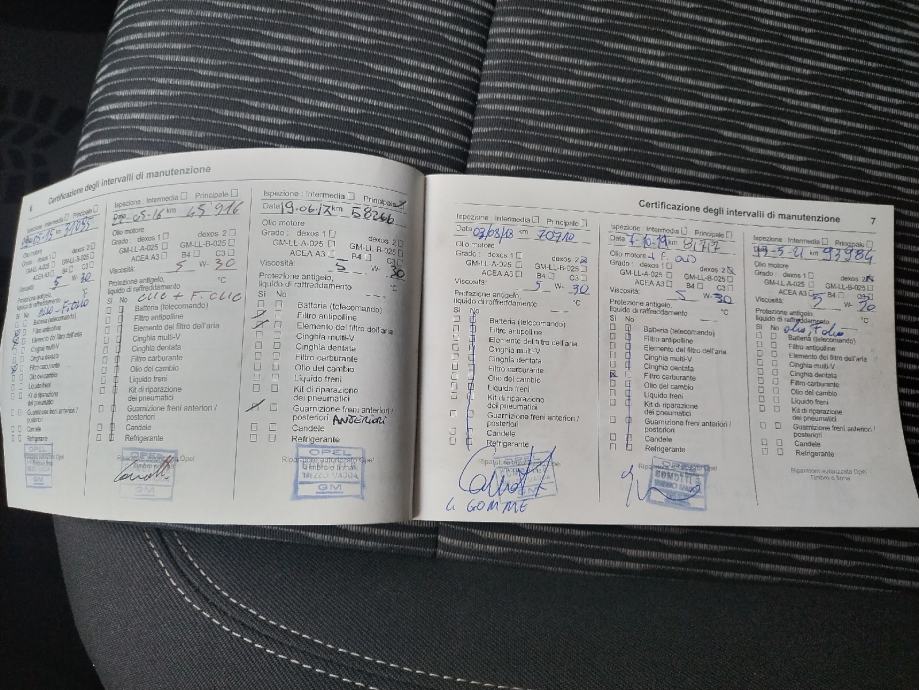 6 Certificazione degli intervalli di manutenzione
Ispezione : Intermedia Principale
Data 05-15 km
Olio motore
Grado : dexos 1 dexos 2
GM-LL-A-025 GM-LL-B-025
ACEA A3 B4 C3
Viscosità: 5 W- 30
Protezione antigelo,
liquido di raffreddamento °C
Sì No olio + F. olio
Batteria (telecomando)
Filtro antipolline
Elemento del filtro dell'aria
Cinghia multi-V
Cinghia dentata
Filtro carburante
Olio del cambio
Liquido freni
Guarnizione freni anteriori /
posteriori
Candele
Refrigerante
OPEL
GM
Ispezione : Intermedia Principale
Data -05-16 km 45 916
Olio motore
Grado : dexos 1 dexos 2
GM-LL-A-025 GM-LL-B-025
ACEA A3 B4 C3
Viscosità: 5 W- 30
Protezione antigelo,
liquido di raffreddamento °C
Sì No olio + F. olio
Batteria (telecomando)
Filtro antipolline
Elemento del filtro dell'aria
Cinghia multi-V
Cinghia dentata
Filtro carburante
Olio del cambio
Liquido freni
Kit di riparazione
dei pneumatici
Guarnizione freni anteriori /
posteriori
Candele
Refrigerante
GM
Ispezione : Intermedia Principale
Data 19-06-17 km 58266
Olio motore
Grado : dexos 1 dexos 2
GM-LL-A-025 GM-LL-B-025
ACEA A3 B4 C3
Viscosità: 5 W- 30
Protezione antigelo,
liquido di raffreddamento °C
Sì No
Batteria (telecomando)
Filtro antipolline
Elemento del filtro dell'aria
Cinghia multi-V
Cinghia dentata
Filtro carburante
Olio del cambio
Liquido freni
Kit di riparazione
dei pneumatici
Guarnizione freni anteriori /
posteriori ANTERIORI
Candele
Refrigerante
Riparatore autorizzato Opel
Timbro e firma
OPEL
TREZZO VADDA
GM
Certificazione degli intervalli di manutenzione 7
Ispezione : Intermedia Principale
Data 03/08/18 km 70710
Olio motore
Grado : dexos 1 dexos 2
GM-LL-A-025 GM-LL-B-025
ACEA A3 B4 C3
Viscosità: 5 W- 30
Protezione antigelo,
liquido di raffreddamento °C
Sì No
Batteria (telecomando)
Filtro antipolline
Elemento del filtro dell'aria
Cinghia multi-V
Cinghia dentata
Filtro carburante
Olio del cambio
Liquido freni
Kit di riparazione
dei pneumatici
Guarnizione freni anteriori /
posteriori
Candele
Refrigerante
4 GOMME
Ispezione : Intermedia Principale
Data 7-10-19 km
Olio motore
Grado : dexos 1 dexos 2
GM-LL-A-025 GM-LL-B-025
ACEA A3 B4 C3
Viscosità: 5 W- 30
Protezione antigelo,
liquido di raffreddamento °C
Sì No
Batteria (telecomando)
Filtro antipolline
Elemento del filtro dell'aria
Cinghia multi-V
Cinghia dentata
Filtro carburante
Olio del cambio
Liquido freni
Kit di riparazione
dei pneumatici
Guarnizione freni anteriori /
posteriori
Candele
Refrigerante
Riparatore autorizzato Opel
Ispezione : Intermedia Principale
-5-21 km 93984
Olio motore
Grado : dexos 1 dexos 2
GM-LL-A-025 GM-LL-B-025
ACEA A3 B4 C3
Viscosità: 5 W- 30
Protezione antigelo,
liquido di raffreddamento °C
Sì No olio F olio
Batteria (telecomando)
Filtro antipolline
Elemento del filtro dell'aria
Cinghia multi-V
Cinghia dentata
Filtro carburante
Olio del cambio
Liquido freni
Kit di riparazione
dei pneumatici
Guarnizione freni anteriori /
posteriori
Candele
Refrigerante
Riparatore autorizzato Opel
Timbro e firma